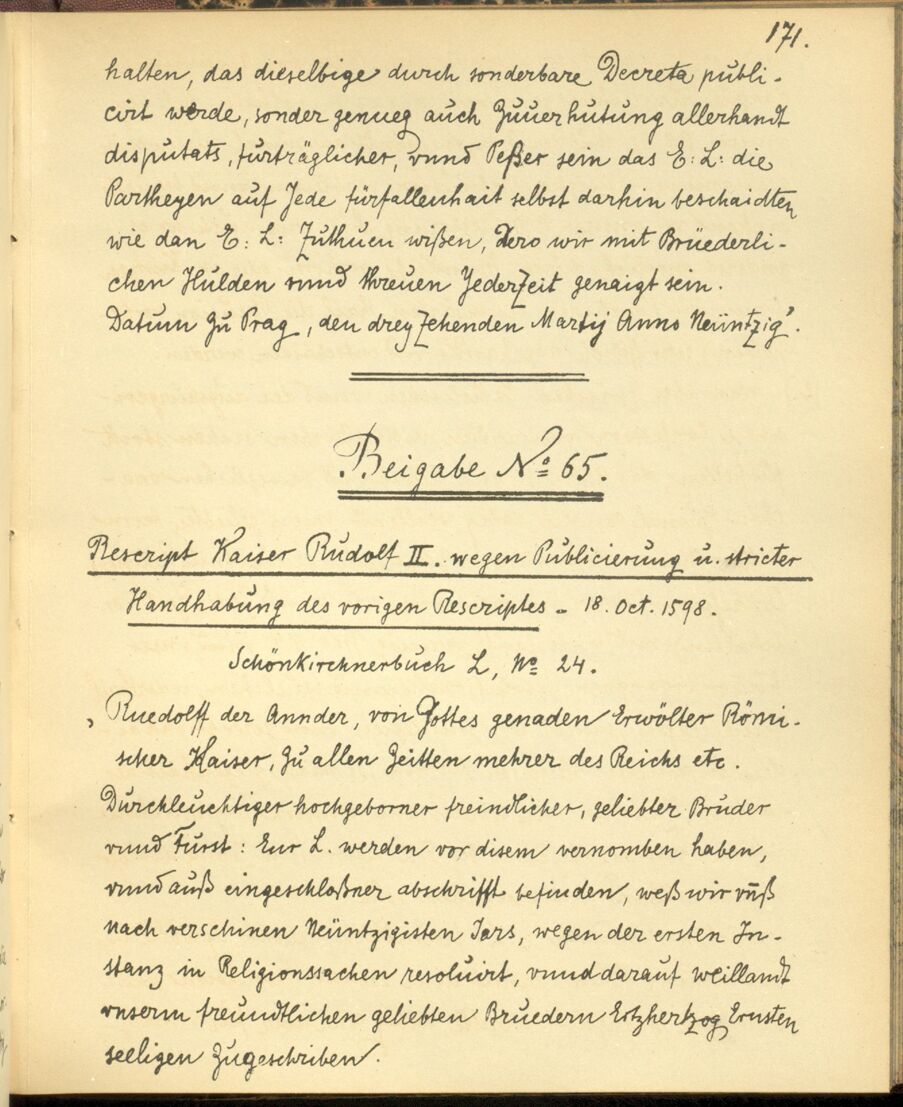 171.
halten, das dieselbige durch sonderbare Decreta publi-
cirt werde, sonder genueg auch Zuuerhutung allerhandt
disputats, fürträglicher, vnnd Peßer sein das E: L: die
Partheyen auf Jede fürfallenhait selbst darhin beschaidten
wie dan E: L: Zuthuen wißen, Dero wir mit Brüederli-
chen Hulden vnnd Threuen JederZeit genaigt sein.
Datum Zu Prag, den dreyZehenden Martij Anno Neüntzig".
Beigabe No 65.
Rescript Kaiser Rudolf II. wegen Publicierung u. stricter
Handhabung des vorigen Rescriptes - 18. Oct. 1598.
Schönkirchnerbuch L, No 24.
„Ruedolff der Annder, von Gottes genaden Erwölter Römi-
scher Kaiser, Zu allen Zeitten mehrer des Reichs etc.
Durchleuchtiger hochgeborner freindlicher, geliebter Bruder
vnnd Furst: Eur L. werden vor disem vernomben haben,
vnnd auß eingeschloßner abschrifft befinden, weß wir vn̄ß
nach verschinen Neüntzigisten Jars, wegen der ersten In-
stanz in Religionssachen resoluirt, vnnd darauf weillandt
vnserm freundtlichen geliebten Bruedern Ertzhertzog Ernsten
seeligen Zugeschriben.